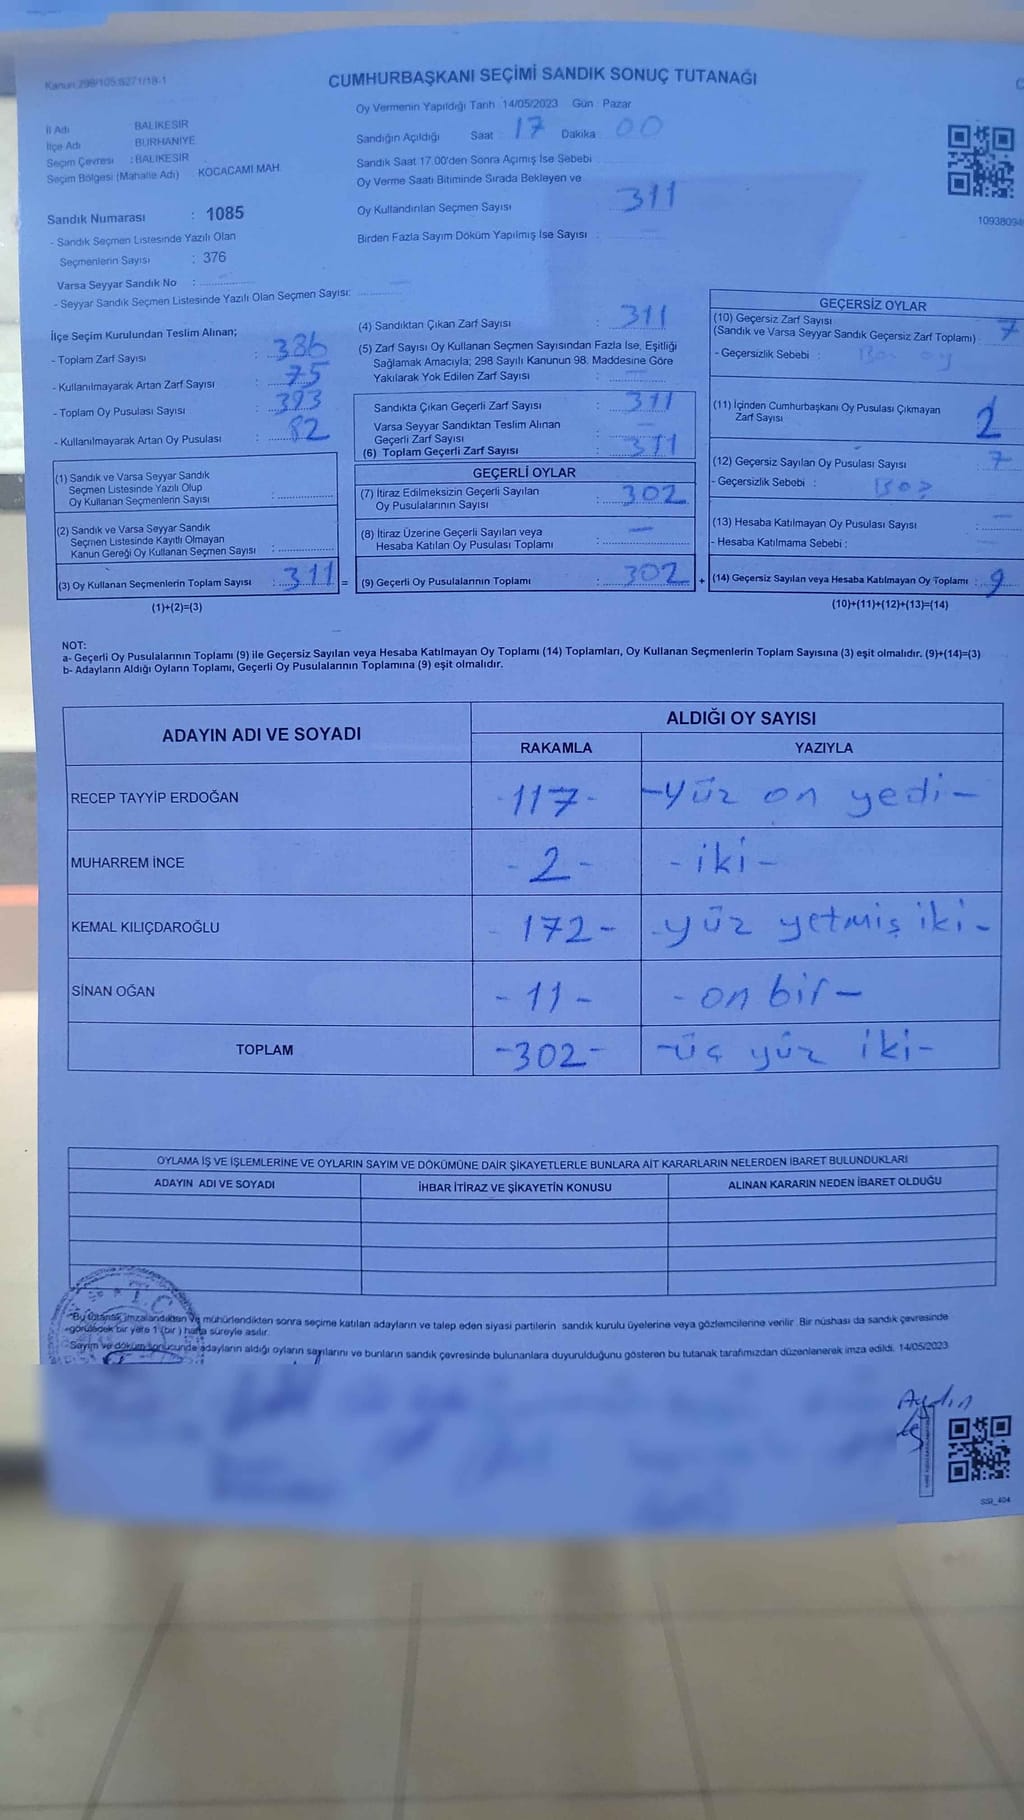 Kanun 298/105:S271/18-1
CUMHURBAŞKANI SEÇİMİ SANDIK SONUÇ TUTANAĞI
İl Adı BALIKESİR
İlçe Adı BURHANİYE
Seçim Çevresi : BALIKESİR
Seçim Bölgesi (Mahalle Adı) KOCACAMİ MAH.
Sandık Numarası : 1085
- Sandık Seçmen Listesinde Yazılı Olan
Seçmenlerin Sayısı : 376
Varsa Seyyar Sandık No :
- Seyyar Sandık Seçmen Listesinde Yazılı Olan Seçmen Sayısı:
Oy Vermenin Yapıldığı Tarih : 14/05/2023 Gün : Pazar
Sandığın Açıldığı Saat : 17 Dakika : 00
Sandık Saat 17.00'den Sonra Açımış İse Sebebi :
Oy Verme Saati Bitiminde Sırada Bekleyen ve
Oy Kullandırılan Seçmen Sayısı 311
Birden Fazla Sayım Döküm Yapılmış İse Sayısı :
10938094
İlçe Seçim Kurulundan Teslim Alınan;
- Toplam Zarf Sayısı : 386
- Kullanılmayarak Artan Zarf Sayısı : 75
- Toplam Oy Pusulası Sayısı : 393
- Kullanılmayarak Artan Oy Pusulası : 82
(1) Sandık ve Varsa Seyyar Sandık
Seçmen Listesinde Yazılı Olup
Oy Kullanan Seçmenlerin Sayısı :
(2) Sandık ve Varsa Seyyar Sandık
Seçmen Listesinde Kayıtlı Olmayan
Kanun Gereği Oy Kullanan Seçmen Sayısı :
(3) Oy Kullanan Seçmenlerin Toplam Sayısı : 311 =
(1)+(2)=(3)
(4) Sandıktan Çıkan Zarf Sayısı : 311
(5) Zarf Sayısı Oy Kullanan Seçmen Sayısından Fazla İse, Eşitliği
Sağlamak Amacıyla; 298 Sayılı Kanunun 98. Maddesine Göre
Yakılarak Yok Edilen Zarf Sayısı :
Sandıkta Çıkan Geçerli Zarf Sayısı : 311
Varsa Seyyar Sandıktan Teslim Alınan
Geçerli Zarf Sayısı :
(6) Toplam Geçerli Zarf Sayısı : 311
GEÇERLİ OYLAR
(7) İtiraz Edilmeksizin Geçerli Sayılan
Oy Pusulalarının Sayısı : 302
(8) İtiraz Üzerine Geçerli Sayılan veya
Hesaba Katılan Oy Pusulası Toplamı :
(9) Geçerli Oy Pusulalarının Toplamı : 302 +
GEÇERSİZ OYLAR
(10) Geçersiz Zarf Sayısı
(Sandık ve Varsa Seyyar Sandık Geçersiz Zarf Toplamı) : 7
- Geçersizlik Sebebi :
(11) İçinden Cumhurbaşkanı Oy Pusulası Çıkmayan
Zarf Sayısı 2
(12) Geçersiz Sayılan Oy Pusulası Sayısı : 7
- Geçersizlik Sebebi :
(13) Hesaba Katılmayan Oy Pusulası Sayısı :
- Hesaba Katılmama Sebebi :
(14) Geçersiz Sayılan veya Hesaba Katılmayan Oy Toplamı : 9
(10)+(11)+(12)+(13)=(14)
NOT:
a- Geçerli Oy Pusulalarının Toplamı (9) ile Geçersiz Sayılan veya Hesaba Katılmayan Oy Toplamı (14) Toplamları, Oy Kullanan Seçmenlerin Toplam Sayısına (3) eşit olmalıdır. (9)+(14)=(3)
b- Adayların Aldığı Oyların Toplamı, Geçerli Oy Pusulalarının Toplamına (9) eşit olmalıdır.
ADAYIN ADI VE SOYADI
ALDIĞI OY SAYISI
RAKAMLA YAZIYLA
RECEP TAYYİP ERDOĞAN -117- -yüz on yedi-
MUHARREM İNCE -2- -iki-
KEMAL KILIÇDAROĞLU -172- -yüz yetmiş iki-
SİNAN OĞAN -11- -on bir-
TOPLAM -302- -üç yüz iki-
OYLAMA İŞ VE İŞLEMLERİNE VE OYLARIN SAYIM VE DÖKÜMÜNE DAİR ŞİKAYETLERLE BUNLARA AİT KARARLARIN NELERDEN İBARET BULUNDUKLARI
ADAYIN ADI VE SOYADI İHBAR İTİRAZ VE ŞİKAYETİN KONUSU ALINAN KARARIN NEDEN İBARET OLDUĞU
T.C.
Bu tutanak imzalandıktan ve mühürlendikten sonra seçime katılan adayların ve talep eden siyasi partilerin sandık kurulu üyelerine veya gözlemcilerine verilir. Bir nüshası da sandık çevresinde
görülecek bir yere 1 (bir) hafta süreyle asılır.
Sayım ve döküm sonucunda adayların aldığı oyların sayılarını ve bunların sandık çevresinde bulunanlara duyurulduğunu gösteren bu tutanak tarafımızdan düzenlenerek imza edildi. 14/05/2023
Aydın
SSI_404